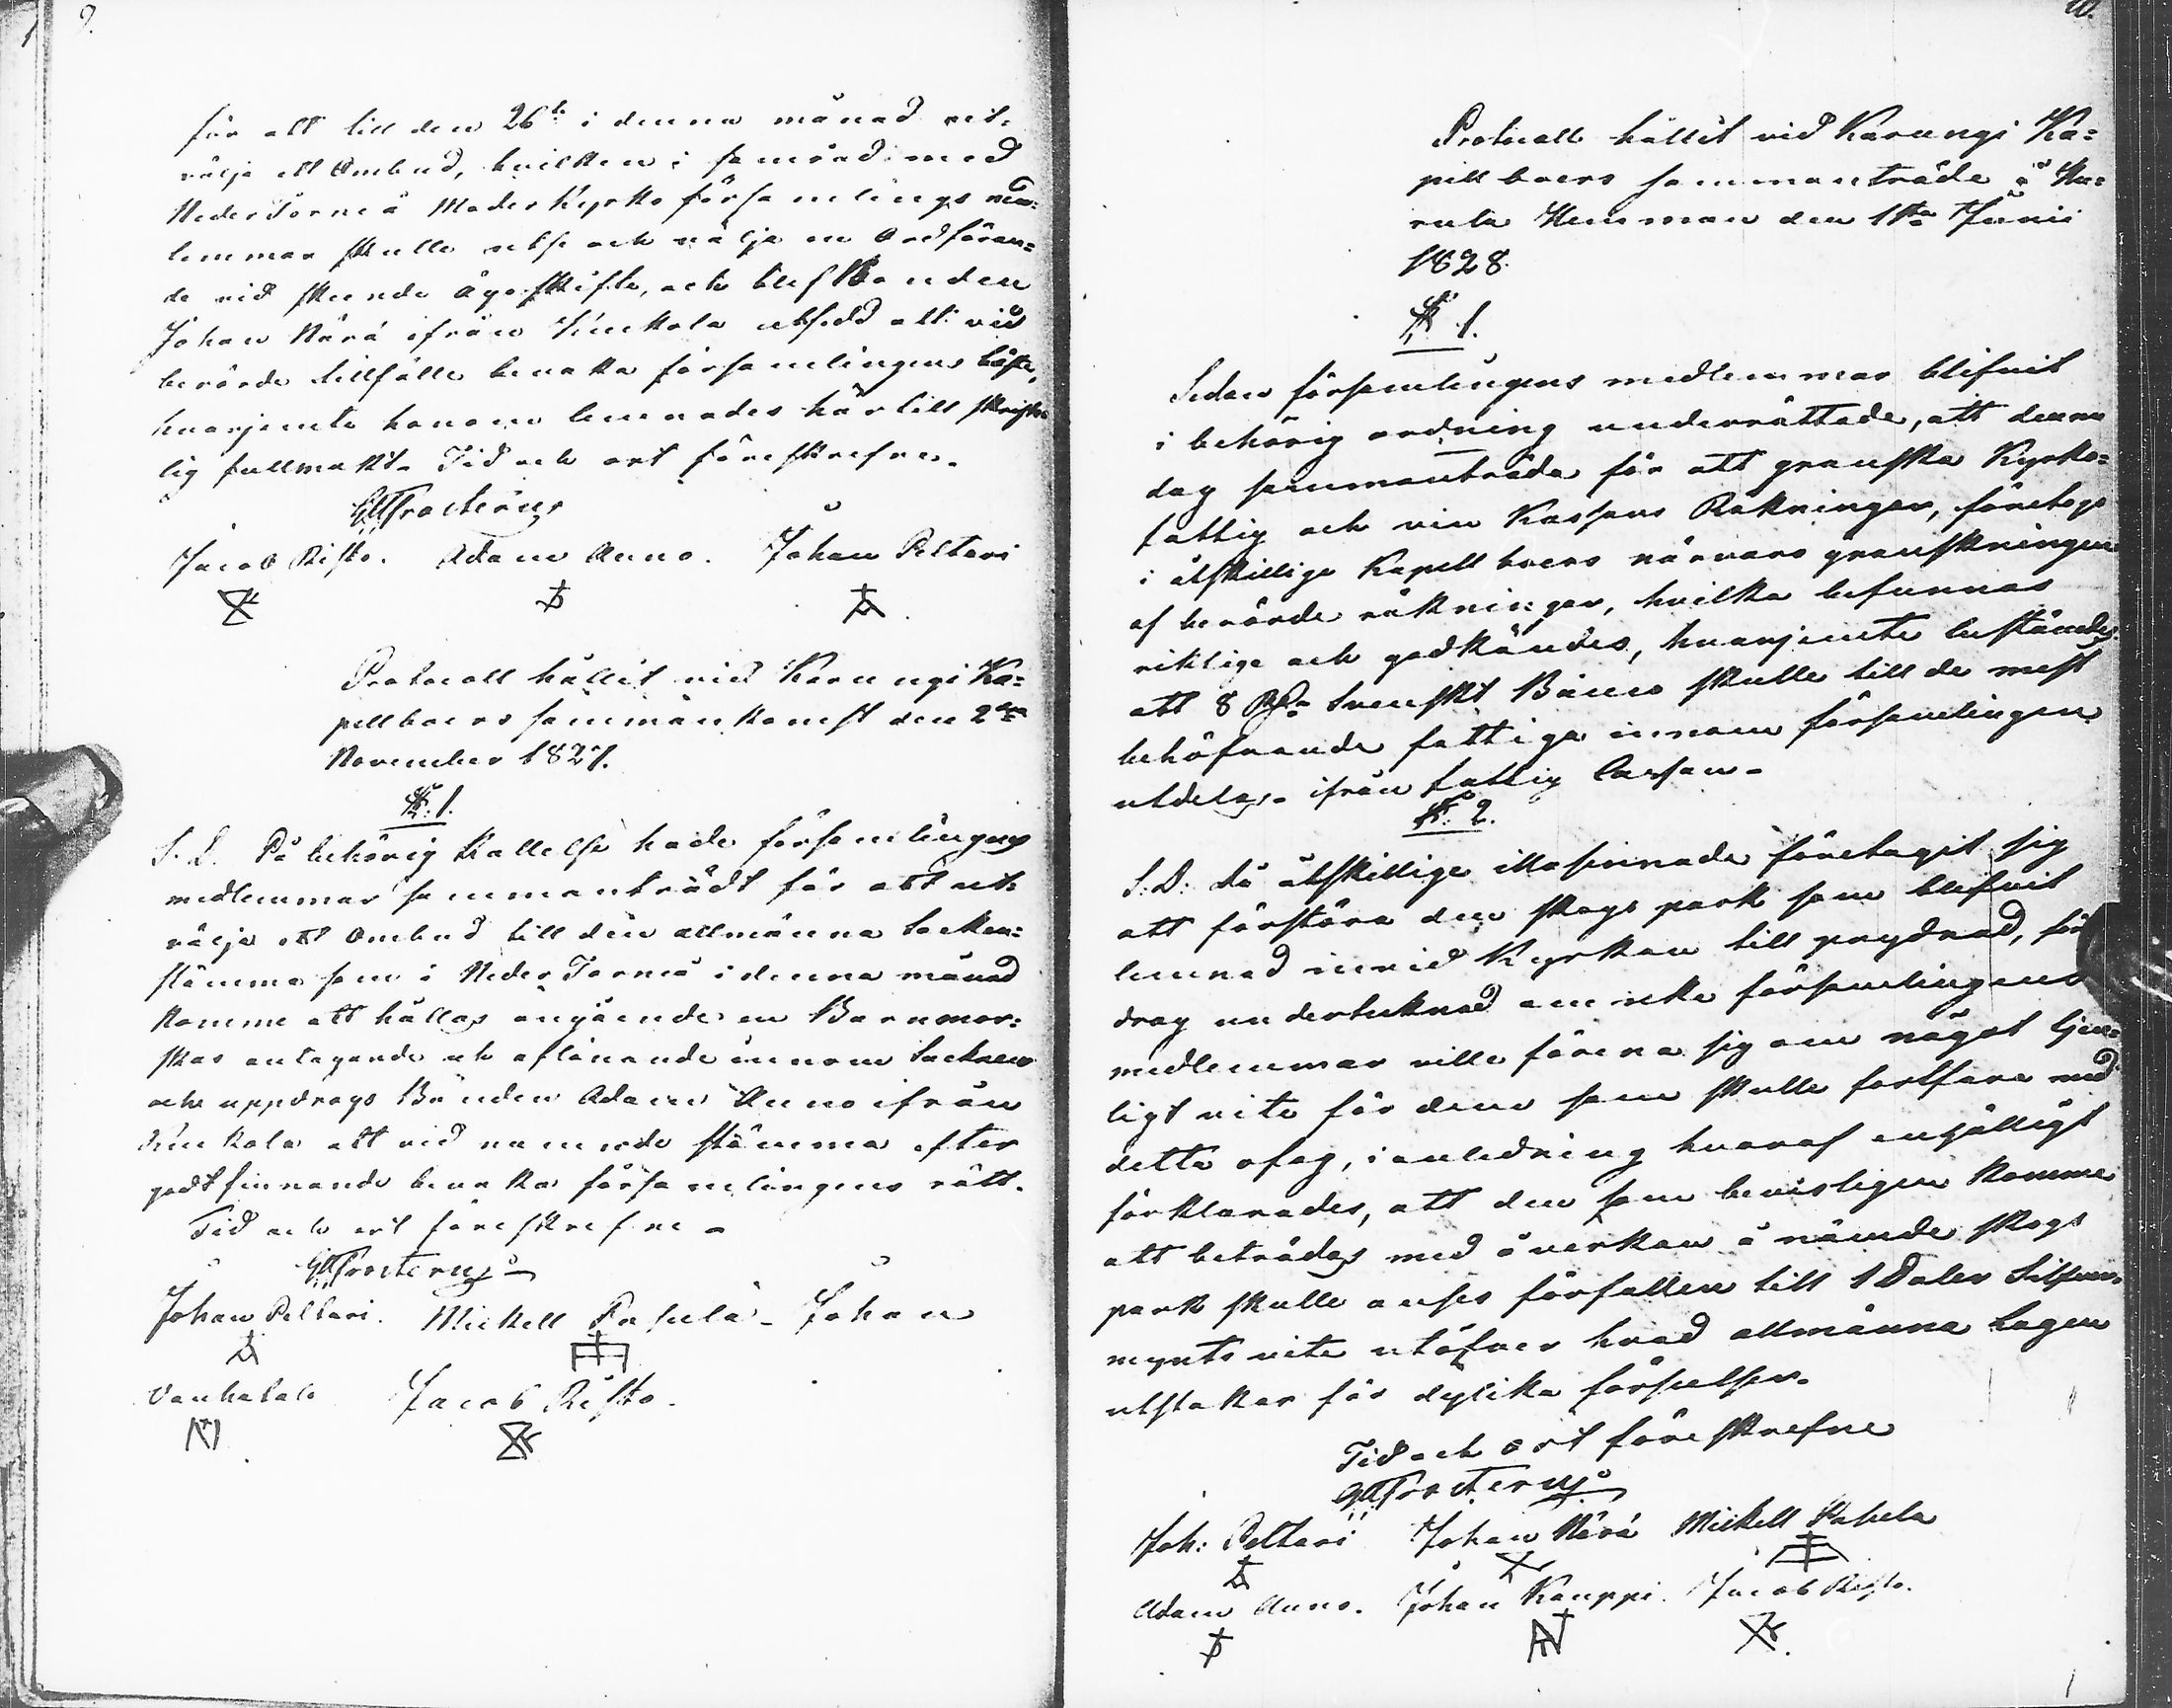 9.
för att till den 26te i denna månad ut-
välja ett Ombud, hvilken i samråd med
Neder Torneå Moder Kyrko församlings med-
lemmar skulle utse och välja en Ordföran=
de vid skeende Ägoskifte, och blef Bonden
Johan Närä ifrån Kuckola utsedd att vid
berörde tillfälle bevaka församlingens bästa,
hvarjemte honom lemnades härtill skrift-
lig fullmakt. Tid och ort föreskrefne.
Frosterus
Jacob Risto. Adam Anno. Johan Peltari
Protocoll hållit vid Karungi Ka=
pellboers sammankomst den 2dra
November 1827.
§. 1.
S. D. På behörig Kallelse hade församlingens
medlemmar sammanträdt för att ut-
välja ett Ombud till den allmänna Socken=
stämma som i Neder Torneå i denna månad
komme att hållas angående en Barnmor=
skas antagande och aflönande innom Socknen
och uppdrogs Bonden Adam Anno ifrån
Kuckola att vid nämnde stämma efter
godtfinnande bevaka församlingens rätt.
Tid och ort föreskrefne.
Frosterus
Johan Peltari. Mickell Papula. Johan
Vanhatalo Jacob Risto.
10.
Protocoll hållit vid Karungi Ka=
pellboers sammanträde å
Hemman den 1sta Junii
1828.
§. 1.
Sedan församlingens medlemmar blifvit
i behörig ordning underrättade, att denna
dag sammanträda för att granska Kyrko=
fattig och vin Kassans Räkningar, företogs
i åtskillige Kapellboers närvaro granskningen
af berörde räkningar, hvilka befunnos
riktige och godkändes, hvarjemte bestämdes
att 8 Rdr Svenskt Banco skulle till de mest
behöfvande fattiga innom församlingen
utdelas ifrån fattig Cassan.
§. 2.
S. D. Då åtskillige illasinnade företagit sig
att förstöra den skogs park som blifvit
lemnad invid Kyrkan till prydnad, för
drog undertecknad om icke församlingens
medlemmar ville förena sig om något tjen=
ligt vite för dem som skulle fortfara med
detta ofog, i anledning hvaraf enhälligt
förklarades, att den som bevisligen komme
att beträdas med åverkan å nämde skogs
park skulle anses förfallen till 1 Daler Silfver-
mynts vite utöfver hvad allmänna Lagen
utstakar för dylika förseelser.
Tid och ort föreskrefne
Frosterus
Joh: Peltari Johan Närä Mickell Papula
Adam Anno. Johan Kauppi. Jacob Risto.